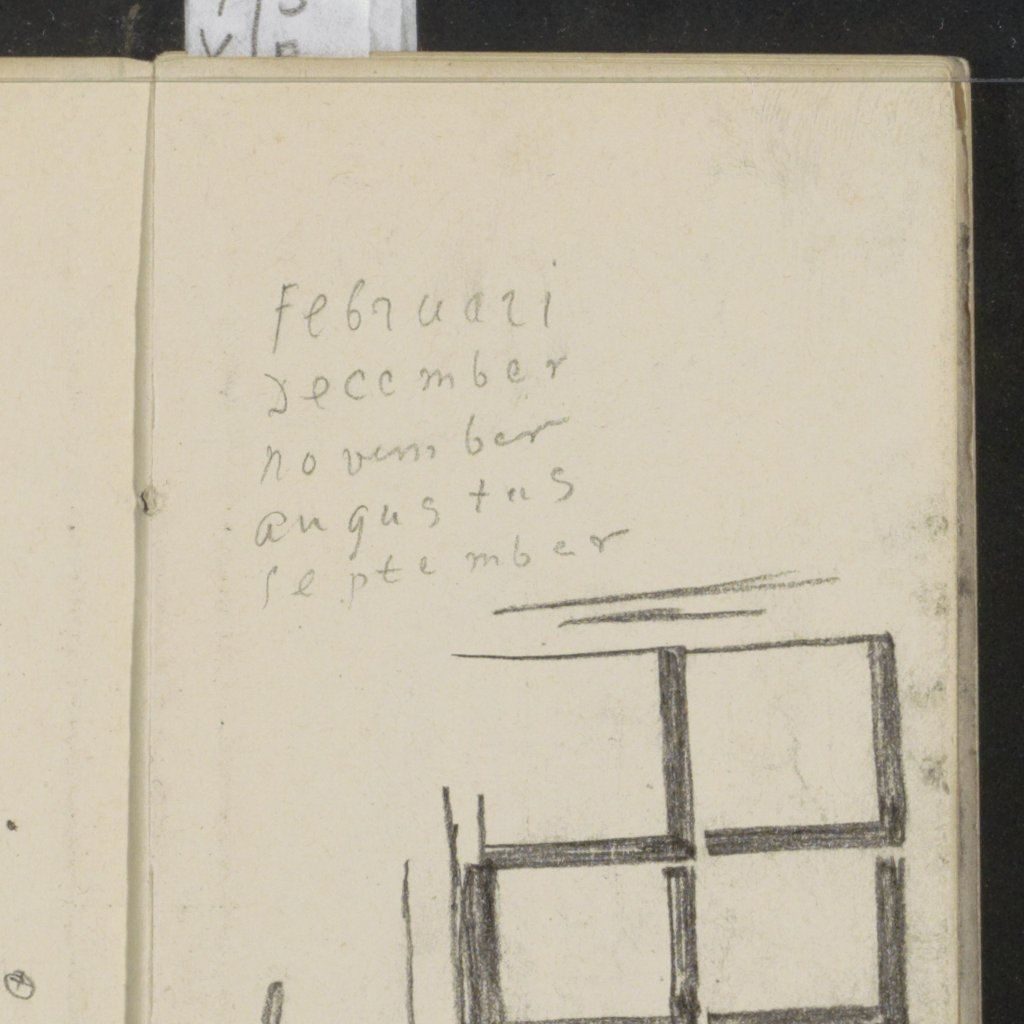 Februari
December
november
augustus
September